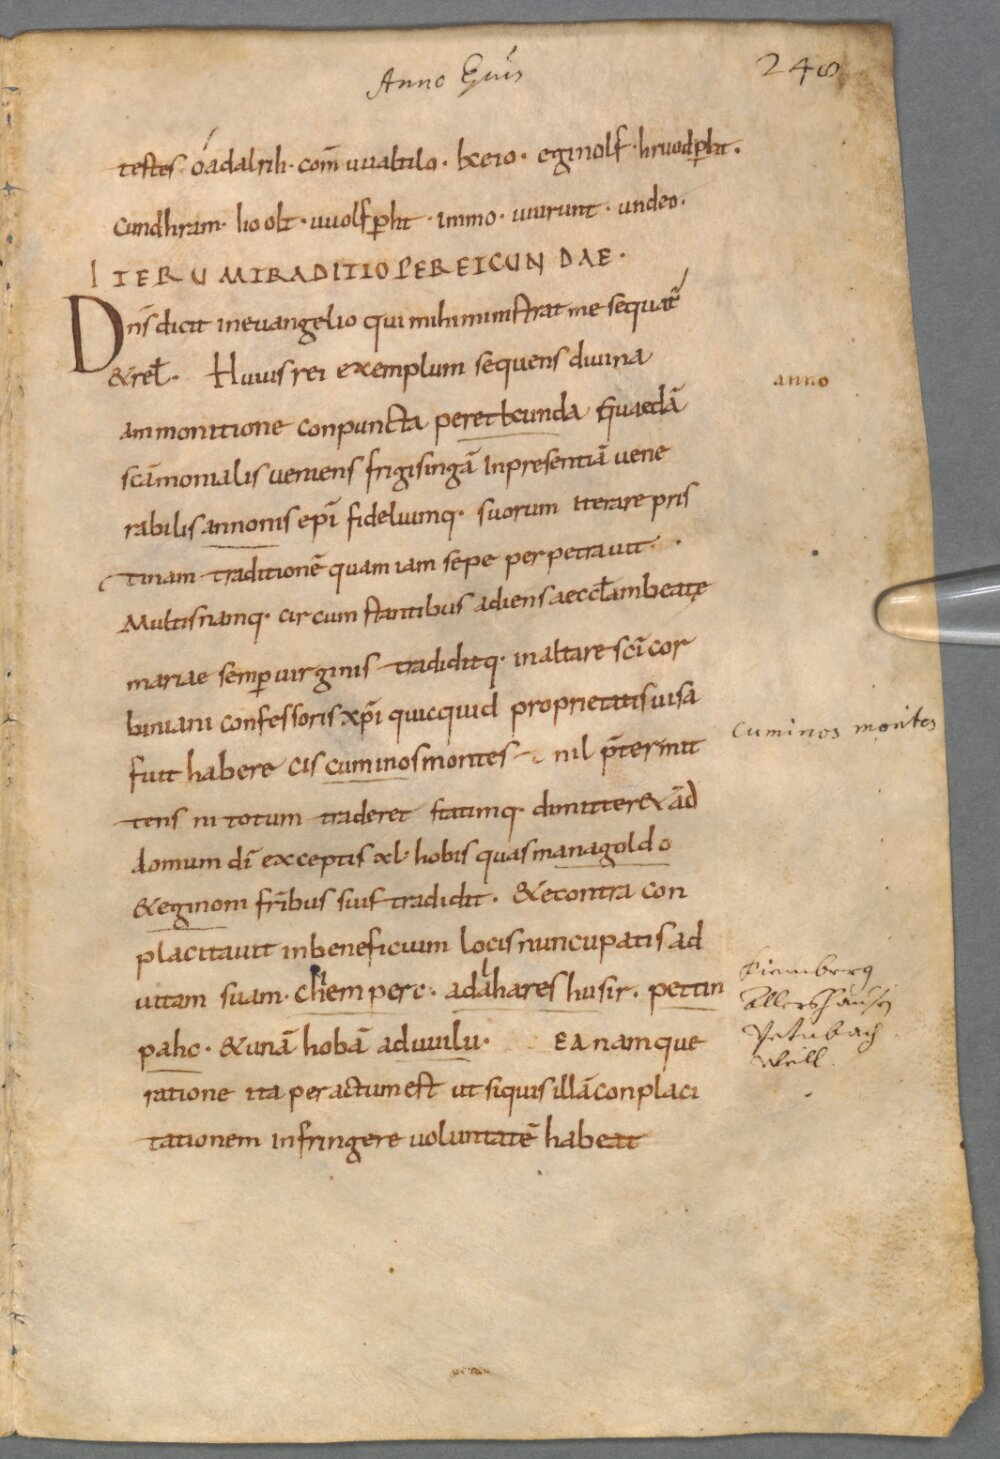 Anno Epūs
248
testes · oadalrih · com̄ uuabilo · kero · eginolf · hruodp̲ht ·
cundhram · hoolt · uuolfp̲ht · immo · uuirunt · undeo ·
ITERUM TRADITIO PEREICUNDAE ·
Dn̄s dicit in euangelio qui mihi ministrat me sequat̄
& rel̄ · Huius rei exemplum sequens diuina
anno
ammonitione conpuncta peretkunda quaedā
scā monialis ueniens frigisingā In presentiā uene
rabilis annonis ep̄i fideliumq· suorum iterare pris
tinam traditionē quam iam sepe perpetrauit ·
Multis namq· circum stantibus adiens aeccl̄am beatę
mariae semp̲ uirginis tradiditq· in altare sc̄i cor
biniani confessoris xp̄i quicquid proprietatis uisa
cuminos montes
fuit habere cis cuminos montes nil p̄termit
tens ni totum traderet statimq· dimitteret ad
domum dī exceptis xl· hobis quas managoldo
& eginoni fr̄ibus suis tradidit · & econtra con
placitauit in beneficium locis nuncupatis ad
uitam suam · chem perc · adalhareshusir · pettin
pahc · & unā hobā ad uuilu · EA namque
Kienberg
Allershausen
Petnbach
Weill
ratione ita peractum est ut siquis illā conplaci
tationem infringere uoluntatē habeat